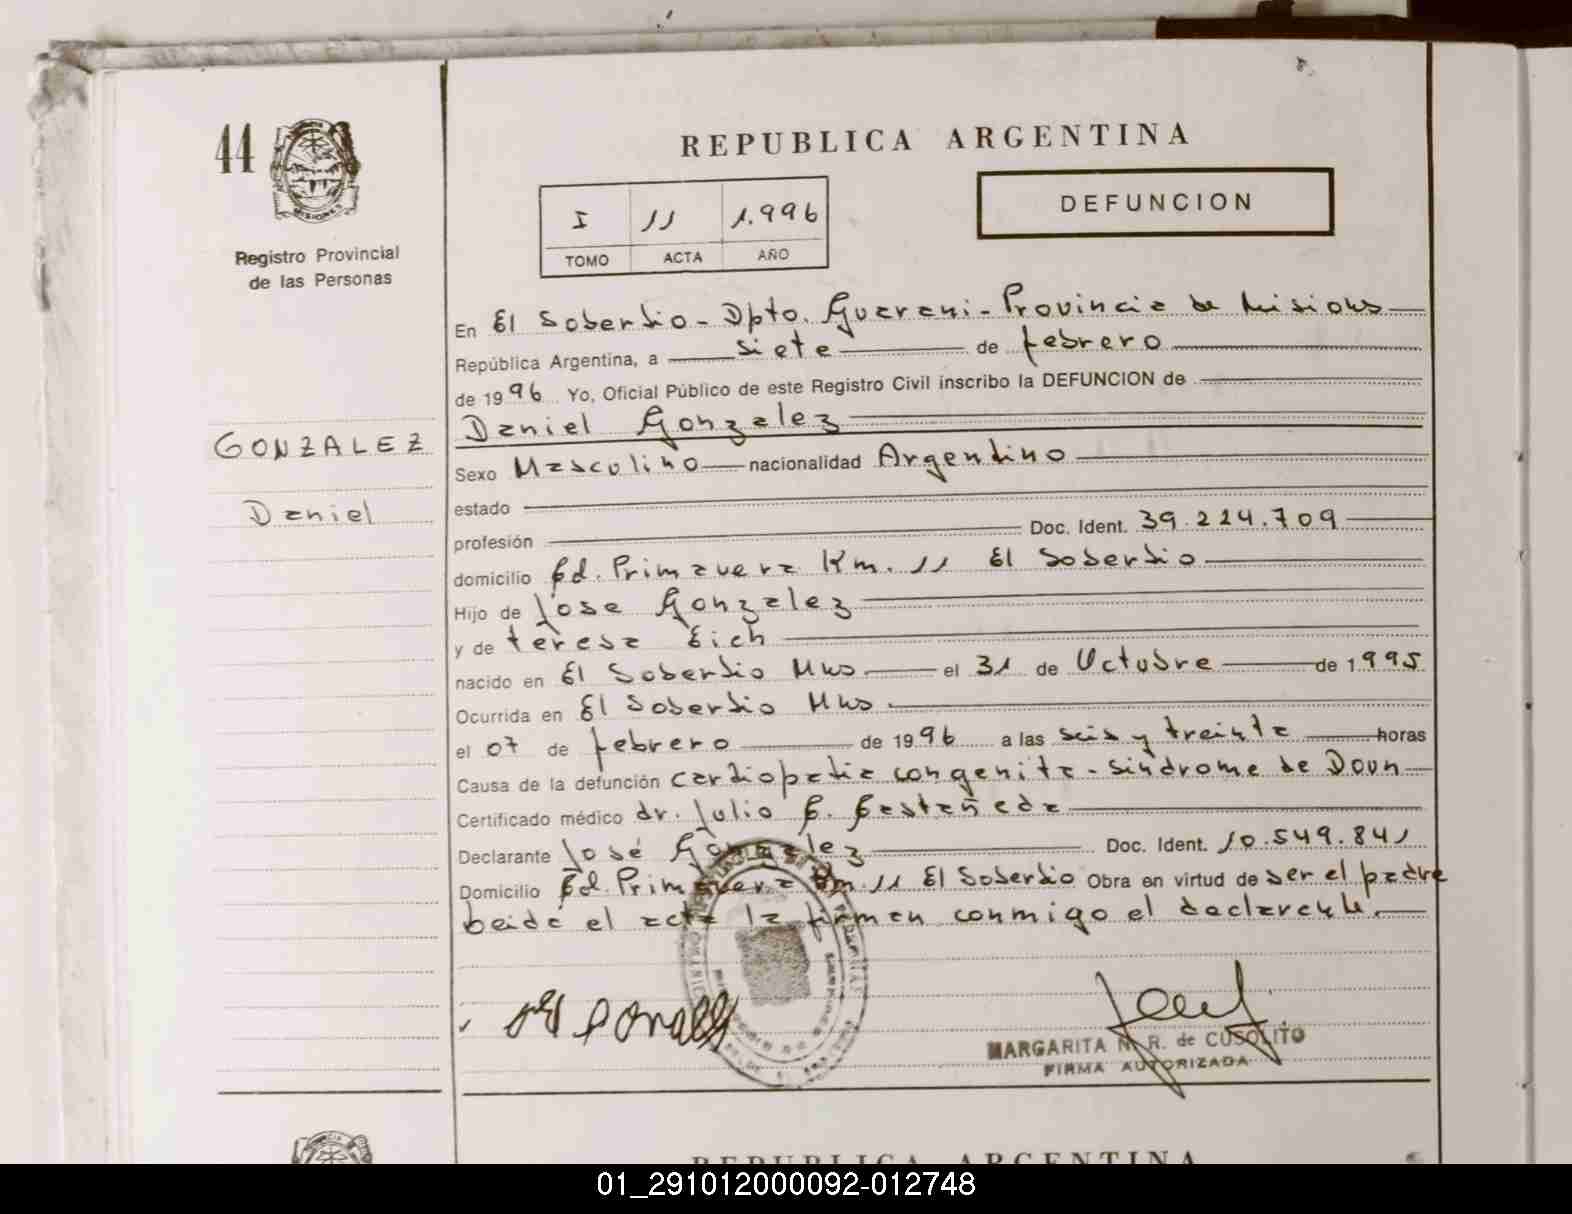 44
Registro Provincial
de las Personas
REPUBLICA ARGENTINA
I 11 1.996
TOMO ACTA AÑO
DEFUNCION
En El Soberbio - Dpto. Guarani - Provincia de Misiones
República Argentina, a siete de febrero
de 1996 Yo, Oficial Público de este Registro Civil inscribo la DEFUNCION de
GONZALEZ
Daniel
Daniel Gonzalez
Sexo Masculino nacionalidad Argentino
estado
profesión Doc. Ident. 39.224.709
domicilio Cd. Primavera Km. 11 El Soberbio
Hijo de José Gonzalez
y de teresa Eich
nacido en El Soberbio Mns el 31 de Octubre de 1995
Ocurrida en El Soberbio Mns.
el 07 de febrero de 1996 a las seis y treinta horas
Causa de la defunción cardiopatia congenita - sindrome de Down
Certificado médico dr. Julio C. Castañeda
Declarante José Gonzalez Doc. Ident. 10.549.841
Domicilio Cd. Primavera Km. 11 El Soberbio Obra en virtud de ser el padre
Leida el acta la firman conmigo el declarante.
MARGARITA N. R. de CUSOLITO
FIRMA AUTORIZADA
REPUBLICA ARGENTINA
01_291012000092-012748